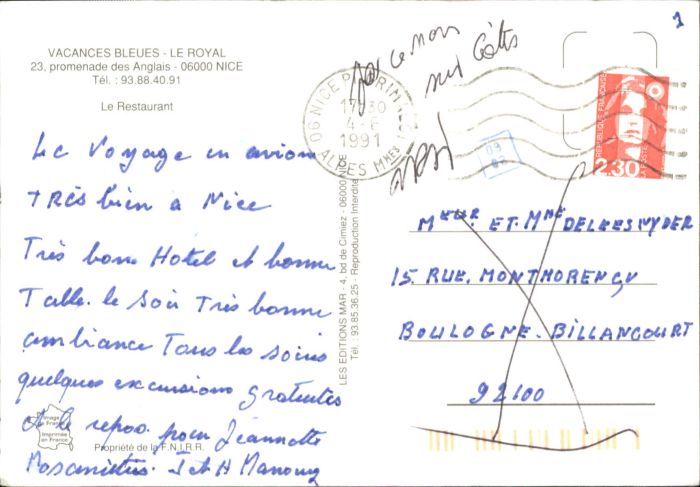 VACANCES BLEUES - LE ROYAL
23, promenade des Anglais - 06000 NICE
Tél. : 93.88.40.91
Le Restaurant
Le Voyage en avion
TRES bien à Nice
Très bon Hotel et bonne
Table. le soir Très bonne
ambiance Tous les soirs
quelques excursions gratuites
et le repos. pour Jeannette
J et H
Image de France
Imprimée en France
Propriété de la F.N.I.R.R.
LES EDITIONS MAR - 4, bd de Cimiez - 06000 NICE
Tél. : 93.85.36.25 - Reproduction Interdite
1
pas ce nom
sur Côtés
06 NICE
17 30
4-6
1991
ALPES MMES
REPUBLIQUE FRANÇAISE
2,30
Meur. ET. Mme DELEESNYDER
15, RUE. MONTMORENCY
BOULOGNE. BILLANCOURT
92100